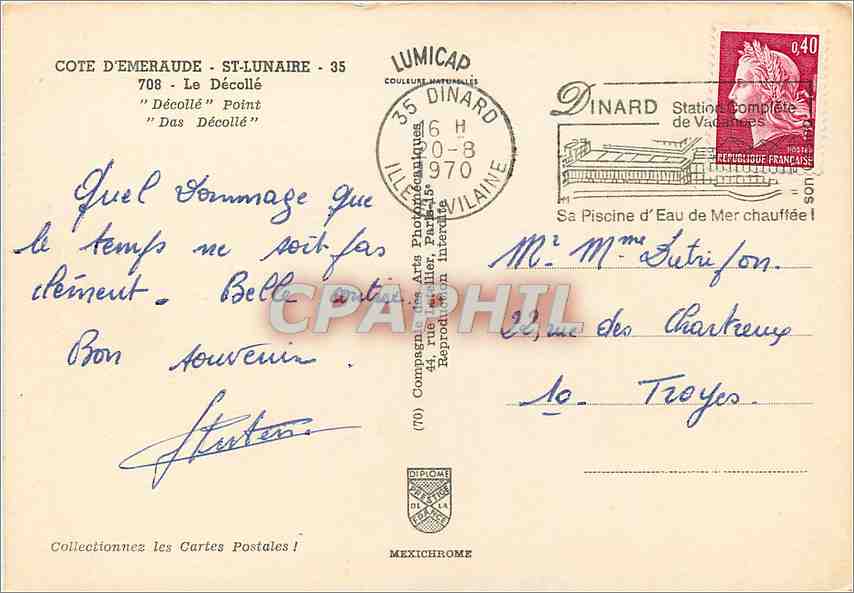 COTE D'EMERAUDE - ST-LUNAIRE - 35
708 - Le Décollé
"Décollé" Point
"Das Décollé"
LUMICAP
COULEURS NATURELLES
35 DINARD
16 H
20-8
1970
ILLE ET VILAINE
DINARD Station Complète
de Vacances
Sa Piscine d'Eau de Mer chauffée !
son
0,40
POSTES
REPUBLIQUE FRANÇAISE
Quel dommage que
le temps ne soit pas
clément. Belle
Bon souvenir.
Mr Mme Dutrifon.
22, rue des Chartreux
10. Troyes.
(70) Compagnie des Arts Photomécaniques
44, rue Letellier, Paris-15e
Reproduction interdite
CPAPHIL
DIPLOME
PRESTIGE
DE LA
FRANCE
MEXICHROME
Collectionnez les Cartes Postales !